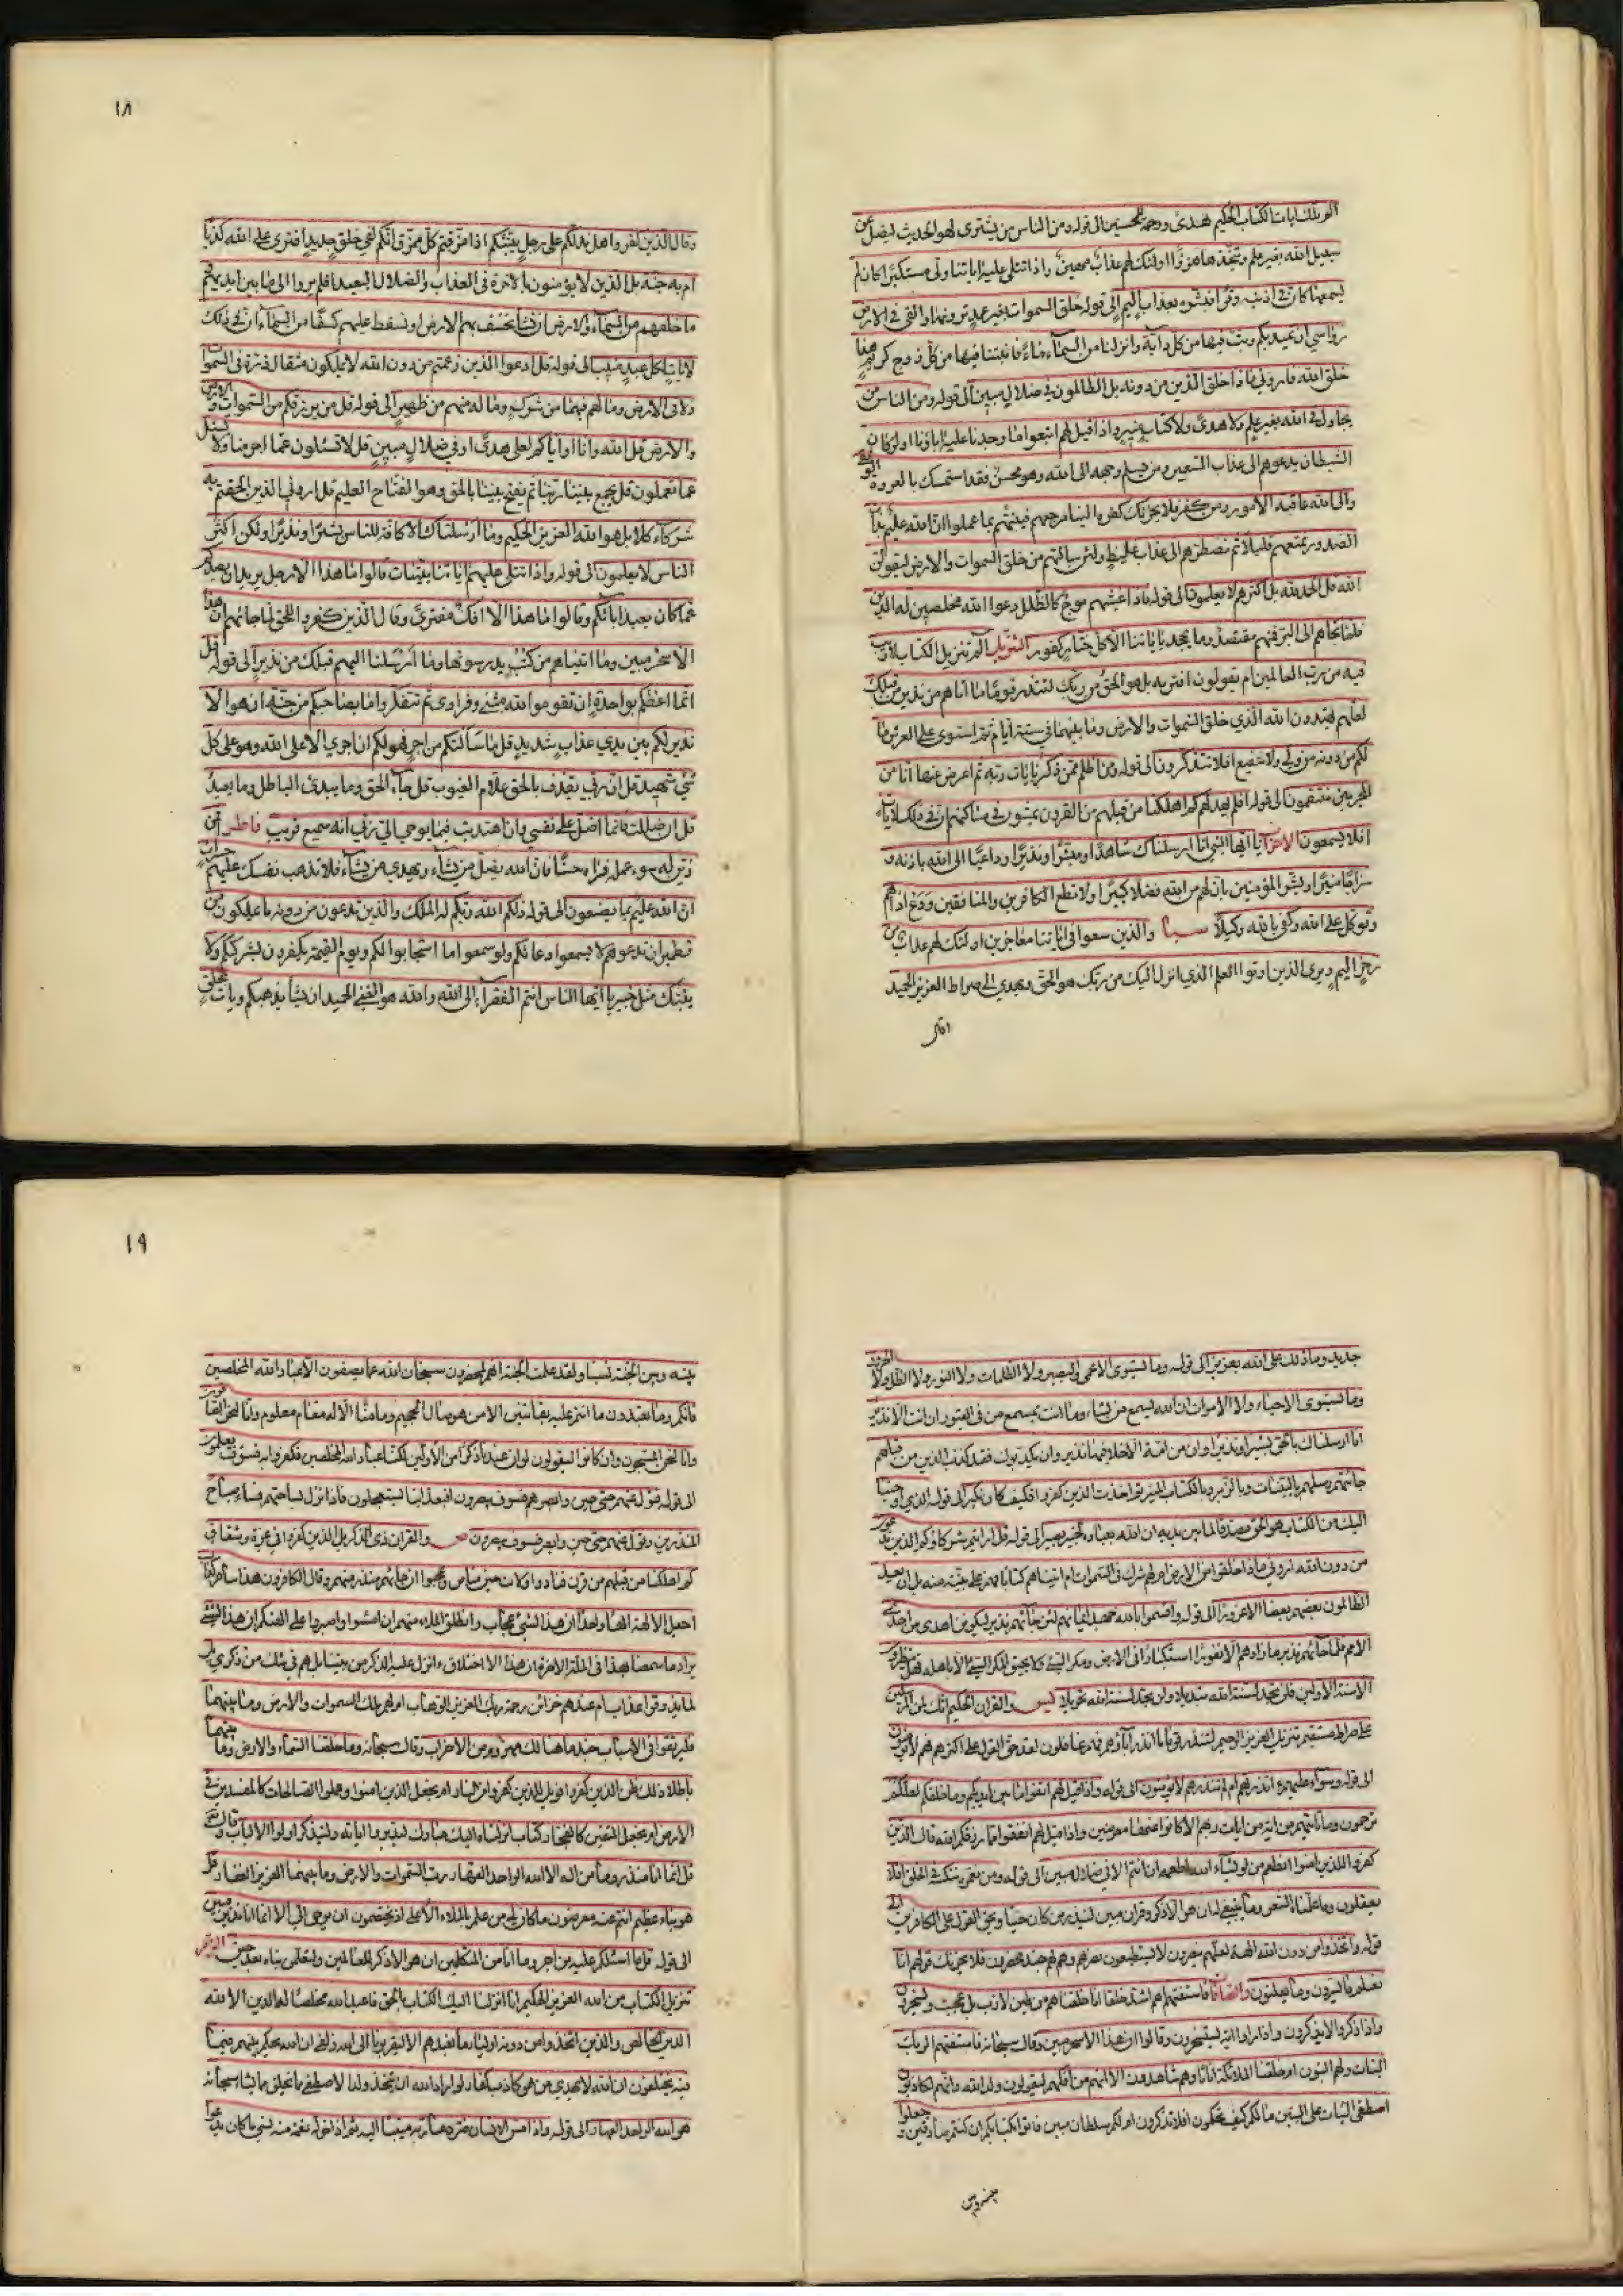 الم تلك ايات الكتاب الحكيم هدىً ورحمة للمحسنين الى قوله ومن الناس من يشترى لهو الحديث ليضل عن
سبيل الله بغير علم ويتخذها هزوًا اولئك لهم عذابٌ مهين واذا تتلى عليه اياتنا ولّى مستكبرًا كان لم
يسمعها كان فى اذنيه وقرًا فبشره بعذاب اليم الى قوله خلق السموات بغير عمدٍ ترونها والقى فى الارض
رواسي ان تميد بكم وبث فيها من كل دآبة وانزلنا من السمآء مآءً فانبتنا فيها من كل زوج كريم هذا
خلق الله فاروني ماذا خلق الذين من دونه بل الظالمون فى ضلال مبين الى قوله ومن الناس من
يجادل فى الله بغير علم ولا هدىً ولا كتاب منير واذا قيل لهم اتبعوا ما وجدنا عليه اباؤنا اولو كان
الشيطان يدعوهم الى عذاب السعير ومن يسلم وجهه الى الله وهو محسن فقد استمسك بالعروة الوثقى
والى الله عاقبة الأمور ومن كفر فلا يحزنك كفره الينا مرجعهم فينبئهم بما عملوا ان الله عليم بذات
الصدور نمتعهم قليلا ثم نضطرهم الى عذاب غليظ ولئن سالتهم من خلق السموات والارض ليقولن
الله قل الحمد لله بل اكثرهم لا يعلمون الى قوله واذا غشيهم موج كالظلل دعوا الله مخلصين له الدين
فلما نجاهم الى البر فمنهم مقتصد وما يجحد باياتنا الا كل ختار كفور التنزيل الم تنزيل الكتاب لا ريب
فيه من رب العالمين ام يقولون افتريه بل هو الحق من ربك لتنذر قومًا ما اتاهم من نذير من قبلك
لعلهم يهتدون الله الذي خلق السموات والارض وما بينهما في ستة ايام ثم استوى على العرش ما
لكم من دونه من ولي ولا شفيع افلا تتذكرون الى قوله ومن اظلم ممن ذكر بايات ربه ثم اعرض عنها انا من
المجرمين منتقمون الى قوله اولم يهد لهم كم اهلكنا من قبلهم من القرون يمشون فى مساكنهم ان فى ذلك لايات
افلا يسمعون الاحزاب يا ايها النبي انا ارسلناك شاهدًا ومبشرًا ونذيرًا وداعيًا الى الله باذنه و
سراجًا منيرًا وبشر المؤمنين بان لهم من الله فضلا كبيرًا ولا تطع الكافرين والمنافقين ودع اذاهم
وتوكل على الله وكفى بالله وكيلًا سبا والذين سعوا فى اياتنا معاجزين اولئك لهم عذاب من
رجز اليم ويرى الذين اوتوا العلم الذي انزل اليك من ربك هو الحق ويهدي الى صراط العزيز الحميد
١٨
وقال الذين كفروا هل ندلكم على رجلٍ ينبئكم اذا مزقتم كل ممزق انكم لفي خلق جديد افترى على الله كذبًا
ام به جنة بل الذين لا يؤمنون بالاخرة فى العذاب والضلال البعيد افلم يروا الى ما بين ايديهم و
ما خلفهم من السمآء والارض ان نشا نخسف بهم الارض او نسقط عليهم كسفًا من السمآء ان فى ذلك
لاية لكل عبد منيب الى قوله قل ادعوا الذين زعمتم من دون الله لا يملكون مثقال ذرة فى السموات
ولا فى الارض وما لهم فيهما من شرك وما له منهم من ظهير الى قوله قل من يرزقكم من السموات و
والارض قل الله وانا او اياكم لعلى هدىً او في ضلال مبين قل لا تسئلون عما اجرمنا ولا نسئل
عما تعملون قل يجمع بيننا ربنا ثم يفتح بيننا بالحق وهو الفتاح العليم قل اروني الذين الحقتم به
شركآء كلا بل هو الله العزيز الحكيم وما ارسلناك الا كافة للناس بشيرًا ونذيرًا ولكن اكثر
الناس لا يعلمون الى قوله واذا تتلى عليهم اياتنا بينات قالوا ما هذا الا رجل يريد ان يصدكم
عما كان يعبد اباؤكم وقالوا ما هذا الا افك مفترىً وقال الذين كفروا للحق لما جائهم ان هذا
الا سحر مبين وما اتيناهم من كتب يدرسونها وما ارسلنا اليهم قبلك من نذير الى قوله قل
انما اعظكم بواحدةٍ ان تقوموا لله مثنى وفرادى ثم تتفكروا ما بصاحبكم من جنة ان هو الا
نذير لكم بين يدي عذاب شديد قل ما سألتكم من اجر فهو لكم ان اجري الا على الله وهو على كل
شئ شهيد قل ان ربي يقذف بالحق علام الغيوب قل جآء الحق وما يبدئ الباطل وما يعيد
قل ان ضللت فانما اضل على نفسي وان اهتديت فبما يوحي الي ربي انه سميع قريب فاطر افمن
زين له سوء عمله فراه حسنًا فان الله يضل من يشآء ويهدي من يشآء فلا تذهب نفسك عليهم حسرات
ان الله عليم بما يصنعون الى قوله ذلكم الله ربكم له الملك والذين تدعون من دونه ما يملكون من
قطمير ان تدعوهم لا يسمعوا دعائكم ولو سمعوا ما استجابوا لكم ويوم القيمة يكفرون بشرككم ولا
ينبئك مثل خبير يا ايها الناس انتم الفقرآء الى الله والله هو الغني الحميد ان يشأ يذهبكم ويات بخلق
جديد وما ذلك على الله بعزيز الى قوله وما يستوى الاعمى والبصير ولا الظلمات ولا النور ولا الظل ولا الحرور
وما يستوى الاحياء ولا الاموات ان الله يسمع من يشاء وما انت بمسمع من فى القبور ان انت الا نذير
انا ارسلناك بالحق بشيرا ونذيرا وان من امة الا خلا فيها نذير وان يكذبوك فقد كذب الذين من قبلهم
جائتهم رسلهم بالبينات وبالزبر وبالكتاب المنير ثم اخذت الذين كفروا فكيف كان نكير الى قوله والذي اوحينا
اليك من الكتاب هو الحق مصدقا لما بين يديه ان الله بعباده لخبير بصير الى قوله قل ارايتم شركاؤكم الذين تدعون
من دون الله اروني ماذا خلقوا من الارض ام لهم شرك فى السموات ام اتيناهم كتابا فهم على بينة منه بل ان يعد
الظالمون بعضهم بعضا الا غرورا الى قوله واقسموا بالله جهد ايمانهم لئن جآئهم نذير ليكونن اهدى من احدى
الامم فلما جآئهم نذير ما زادهم الا نفورا استكبارا فى الارض ومكر السيئ ولا يحيق المكر السيئ الا باهله فهل ينظرون
الا سنة الاولين فلن تجد لسنة الله تبديلا ولن تجد لسنة الله تحويلا يس والقران الحكيم انك لمن المرسلين
على صراط مستقيم تنزيل العزيز الرحيم لتنذر قوما ما انذر آباؤهم فهم غافلون لقد حق القول على اكثرهم فهم لا يؤمنون
الى قوله وسواء عليهم ءانذرتهم ام لم تنذرهم لا يؤمنون الى قوله واذا قيل لهم اتقوا ما بين ايديكم وما خلفكم لعلكم
ترحمون وما تاتيهم من اية من ايات ربهم الا كانوا عنها معرضين واذا قيل لهم انفقوا مما رزقكم الله قال الذين
كفروا للذين امنوا انطعم من لو يشآء الله اطعمه ان انتم الا في ضلال مبين الى قوله ومن نعمره ننكسه فى الخلق افلا
يعقلون وما علمناه الشعر وما ينبغي له ان هو الا ذكر وقران مبين لينذر من كان حيا ويحق القول على الكافرين الى
قوله واتخذوا من دون الله الهة لعلهم ينصرون لا يستطيعون نصرهم وهم لهم جند محضرون فلا يحزنك قولهم انا
نعلم ما يسرون وما يعلنون والصافات فاستفتهم اهم اشد خلقا ام من خلقنا انا خلقناهم من طين لازب بل عجبت ويسخرون
واذا ذكروا لا يذكرون واذا راوا اية يستسخرون وقالوا ان هذا الا سحر مبين وقال سبحانه فاستفتهم الربك
البنات ولهم البنون ام خلقنا الملائكة اناثا وهم شاهدون الا انهم من افكهم ليقولون ولد الله وانهم لكاذبون
اصطفى البنات على البنين ما لكم كيف تحكمون افلا تذكرون ام لكم سلطان مبين فاتوا بكتابكم ان كنتم صادقين وجعلوا
١٩
بينه وبين الجنة نسبا ولقد علمت الجنة انهم لمحضرون سبحان الله عما يصفون الا عباد الله المخلصين
فانكم وما تعبدون ما انتم عليه بفاتنين الا من هو صال الجحيم وما منا الا له مقام معلوم وانا لنحن الصافون
وانا لنحن المسبحون وان كانوا ليقولون لو ان عندنا ذكرا من الأولين لكنا عباد الله المخلصين فكفروا به فسوف يعلمون
الى قوله فتول عنهم حتى حين وابصرهم فسوف يبصرون افبعذابنا يستعجلون فاذا نزل بساحتهم فسآء صباح
المنذرين وتول عنهم حتى حين وابصر فسوف يبصرون ص والقران ذي الذكر بل الذين كفروا في عزة وشقاق
كم اهلكنا من قبلهم من قرن فنادوا ولات حين مناص وعجبوا ان جآئهم منذر منهم وقال الكافرون هذا ساحر كذاب
اجعل الالهة الها واحدا ان هذا لشئ عجاب وانطلق الملاء منهم ان امشوا واصبروا على الهتكم ان هذا لشئ
يراد ما سمعنا بهذا فى الملة الاخرة ان هذا الا اختلاق ءانزل عليه الذكر من بيننا بل هم في شك من ذكري بل
لما يذوقوا عذاب ام عندهم خزائن رحمة ربك العزيز الوهاب ام لهم ملك السموات والارض وما بينهما
فليرتقوا فى الاسباب جند ما هنالك مهزوم من الاحزاب وقال سبحانه وما خلقنا السماء والارض وما بينهما
باطلا ذلك ظن الذين كفروا فويل للذين كفروا من النار ام نجعل الذين امنوا وعملوا الصالحات كالمفسدين في
الارض ام نجعل المتقين كالفجار كتاب انزلناه اليك مبارك ليدبروا اياته وليتذكر اولوا الالباب وقال تع
قل انما انا منذر وما من اله الا الله الواحد القهار رب السموات والارض وما بينهما العزيز الغفار قل
هو نباء عظيم انتم عنه معرضون ما كان لي من علم بالملاء الأعلى اذ يختصمون ان يوحى الي الا انما انا نذير مبين
الى قوله قل ما اسئلكم عليه من اجر وما انا من المتكلفين ان هو الا ذكر للعالمين ولتعلمن نباه بعد حين الزمر
تنزيل الكتاب من الله العزيز الحكيم انا انزلنا اليك الكتاب بالحق فاعبد الله مخلصا له الدين الا لله
الدين الخالص والذين اتخذوا من دونه اوليآء ما نعبدهم الا ليقربونا الى الله زلفى ان الله يحكم بينهم فيما
فيه يختلفون ان الله لا يهدي من هو كاذب كفار لو اراد الله ان يتخذ ولدا لاصطفى مما يخلق ما يشاء سبحانه
هو الله الواحد القهار الى قوله واذا مس الانسان ضر دعا ربه منيبا اليه ثم اذا خوله نعمة منه نسي ما كان يدعوا